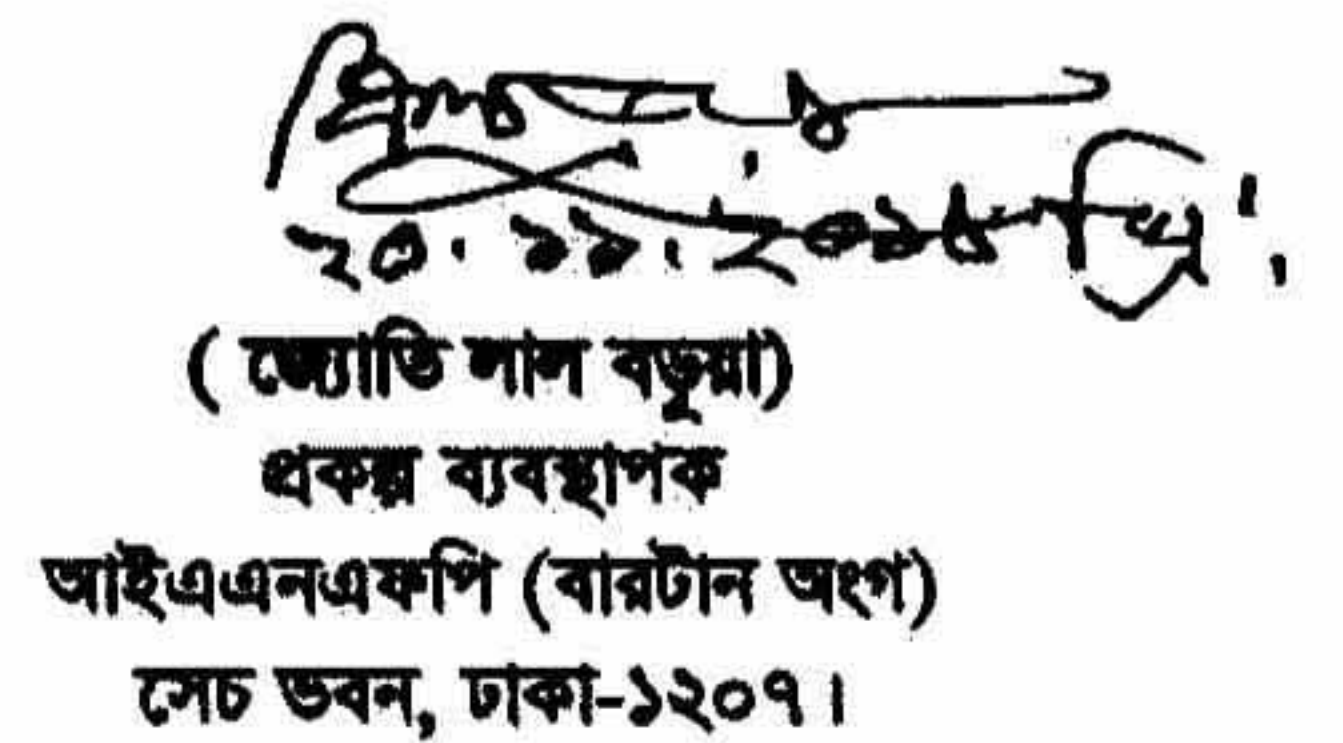 ২০.১১.২০১৪ খ্রি.
( জ্যোতি লাল বড়ূয়া)
প্রকল্প ব্যবস্থাপক
আইএএনএফপি (বারটান অংগ)
সেচ ভবন, ঢাকা-১২০৭।